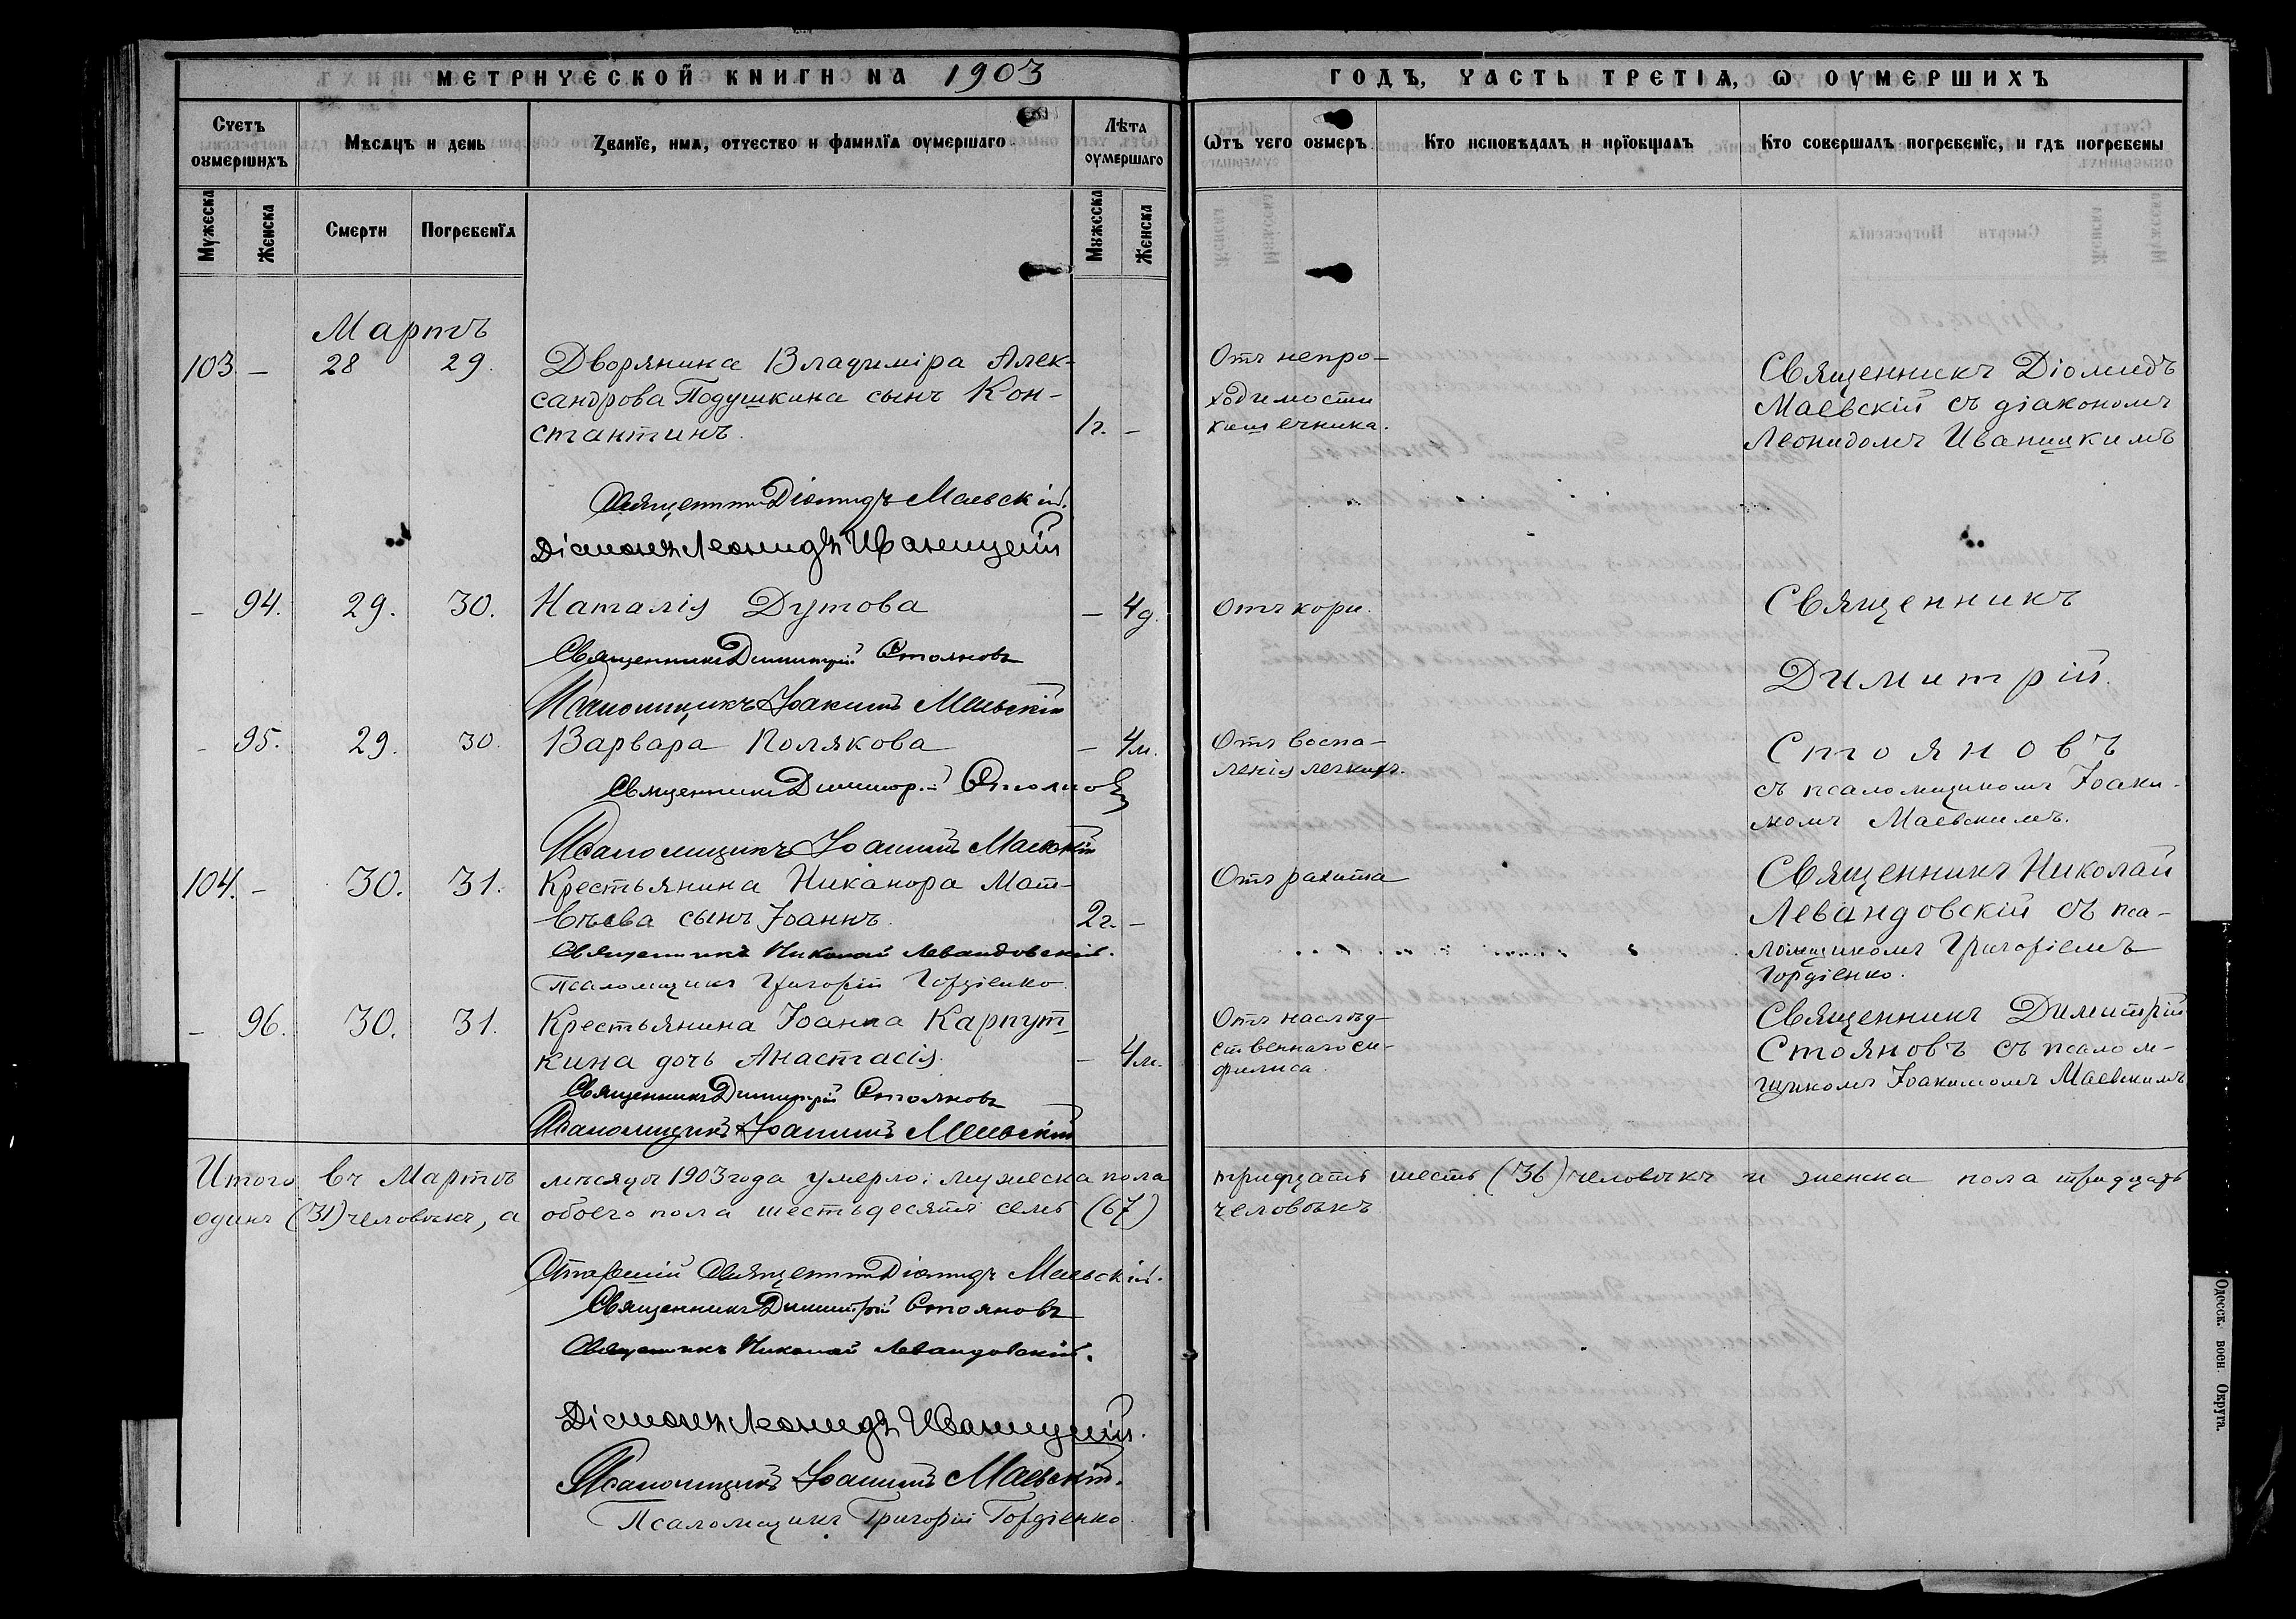 МЕТРИЧЕСКОЙ КНИГИ НА 1903 ГОДЪ, ЧАСТЬ ТРЕТІЯ, Ѡ ОУМЕРШИХЪ
Счетъ оумершихъ
Мѣсяцъ и день
Званїе, имя, отчество и фамилїа оумершаго
Лѣта оумершаго
Ѿтъ чего оумеръ
Кто исповѣдалъ и прїобщалъ
Кто совершалъ погребенїе, и гдѣ погребены
Мужеска
Женска
Смерти
Погребенїя
Мужеска
Женска
Мартъ
103 — 28 29. Дворянина Владиміра Алек-
сандрова Подушкина сынъ Кон-
стантинъ. 1г. —
Отъ непро-
ходимости
кишечника.
Священникъ Діомидъ
Маевскій съ діакономъ
Леонидомъ Иваницкимъ
Священникъ Діомидъ Маевскій.
Діаконъ Леонидъ Иваницкій
— 94. 29. 30. Наталія Дутова — 4д. Отъ кори.
Священникъ
Димитрій
Священникъ Димитрій Стояновъ
Псаломщикъ Іоакимъ Маевскій
— 95. 29. 30. Варвара Полякова — 4м. Отъ воспа-
ленія легкихъ.
Стояновъ
съ псаломщикомъ Іоаки-
момъ Маевскимъ.
Священникъ Димитрій Стояновъ
Псаломщикъ Іоакимъ Маевскій
104. — 30. 31. Крестьянина Никанора Мат-
вѣева сынъ Іоаннъ. 2г. —
Отъ рахита
Священникъ Николай
Левандовскій съ пса-
ломщикомъ Григоріемъ
Гордіенко.
Священникъ Николай Левандовскій.
Псаломщикъ Григорій Гордіенко
— 96. 30. 31. Крестьянина Іоанна Карпут-
кина дочь Анастасія. — 4м.
Отъ наслѣд-
ственнаго си-
филиса.
Священникъ Димитрій
Стояновъ съ псалом-
щикомъ Іоакимомъ Маевскимъ
Священникъ Димитрій Стояновъ
Псаломщикъ Іоакимъ Маевскій
Итого въ Мартѣ мѣсяцѣ 1903 года умерло: мужеска пола тридцать шесть (36) человѣкъ и женска пола тридцать
одинъ (31) человѣкъ, а обоего пола шестьдесятъ семь (67) человѣкъ
Старшій Священникъ Діомидъ Маевскій.
Священникъ Димитрій Стояновъ
Священникъ Николай Левандовскій.
Діаконъ Леонидъ Иваницкій.
Псаломщикъ Іоакимъ Маевскій.
Псаломщикъ Григорій Гордіенко.
Одесск. воен Округа.